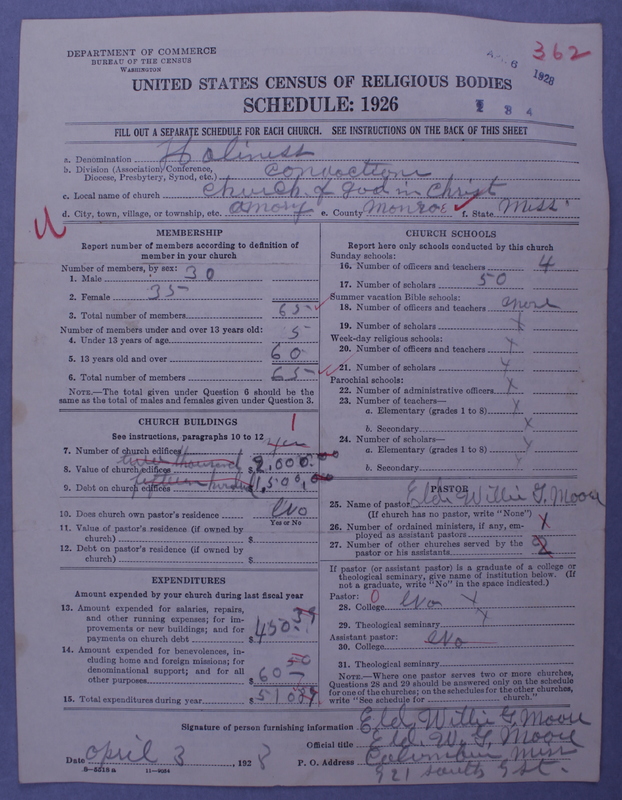 DEPARTMENT OF COMMERCE
BUREAU OF THE CENSUS
WASHINGTON
362
1928
1 8 4
UNITED STATES CENSUS OF RELIGIOUS BODIES
SCHEDULE: 1926
FILL OUT A SEPARATE SCHEDULE FOR EACH CHURCH. SEE INSTRUCTIONS ON THE BACK OF THIS SHEET
a. Denomination Holiness
b. Division (Association, Conference, Diocese, Presbytery, Synod, etc.)
c. Local name of church Church of God in Christ
d. City, town, village, or township, etc. Amory e. County Monroe f. State Miss
MEMBERSHIP
Report number of members according to definition of
member in your church
Number of members, by sex:
1. Male 30
2. Female 35
3. Total number of members 65
Number of members under and over 13 years old:
4. Under 13 years of age 5
5. 13 years old and over 60
6. Total number of members 65
NOTE.—The total given under Question 6 should be
same as the total of males and females given under Question 3.
CHURCH BUILDINGS
See instructions, paragraphs 10 to 12
1
7. Number of church edifices
8. Value of church edifices $ 2,000.00
9. Debt on church edifices 1,500.00
10. Does church own pastor's residence No
Yes or No
11. Value of pastor's residence (if owned by
church) $
12. Debt on pastor's residence (if owned by
church) $
EXPENDITURES
Amount expended by your church during last fiscal year
13. Amount expended for salaries, repairs,
and other running expenses; for im-
provements or new buildings; and for
payments on church debt $ 450.39
14. Amount expended for benevolences, in-
cluding home and foreign missions; for
denominational support; and for all
other purposes 60
15. Total expenditures during year $
CHURCH SCHOOLS
Report here only schools conducted by this church
Sunday schools:
16. Number of officers and teachers 4
17. Number of scholars 50
Summer vacation Bible schools:
18. Number of officers and teachers None
19. Number of scholars X
Week-day religious schools:
20. Number of officers and teachers X
21. Number of scholars X
Parochial schools:
22. Number of administrative officers X
23. Number of teachers—
a. Elementary (grades 1 to 8) X
b. Secondary X
24. Number of scholars—
a. Elementary (grades 1 to 8) X
b. Secondary X
PASTOR
25. Name of pastor Eld. Willie G. Moore
(If church has no pastor, write "None")
26. Number of ordained ministers, if any, em-
ployed as assistant pastors X
27. Number of other churches served by the
pastor or his assistants 2
If pastor (or assistant pastor) is a graduate of a college or
theological seminary, give name of institution below. (If
not graduate, write "No" in the space indicated.)
Pastor: 0
28. College No X
29. Theological seminary X
Assistant pastor:
30. College No
31. Theological seminary
NOTE.—Where one pastor serves two or more churches,
Questions 28 and 29 should be answered only on the schedule
for one of the churches; on the schedules for the other churches,
write "See schedule for church."
Signature of person furnishing information Eld. Willie G. Moore
Official title Eld. W. G. Moore
Date April 3, 1928 P. O. Address Columbus Miss
921 South 9 St.
8-5518a 11-9054